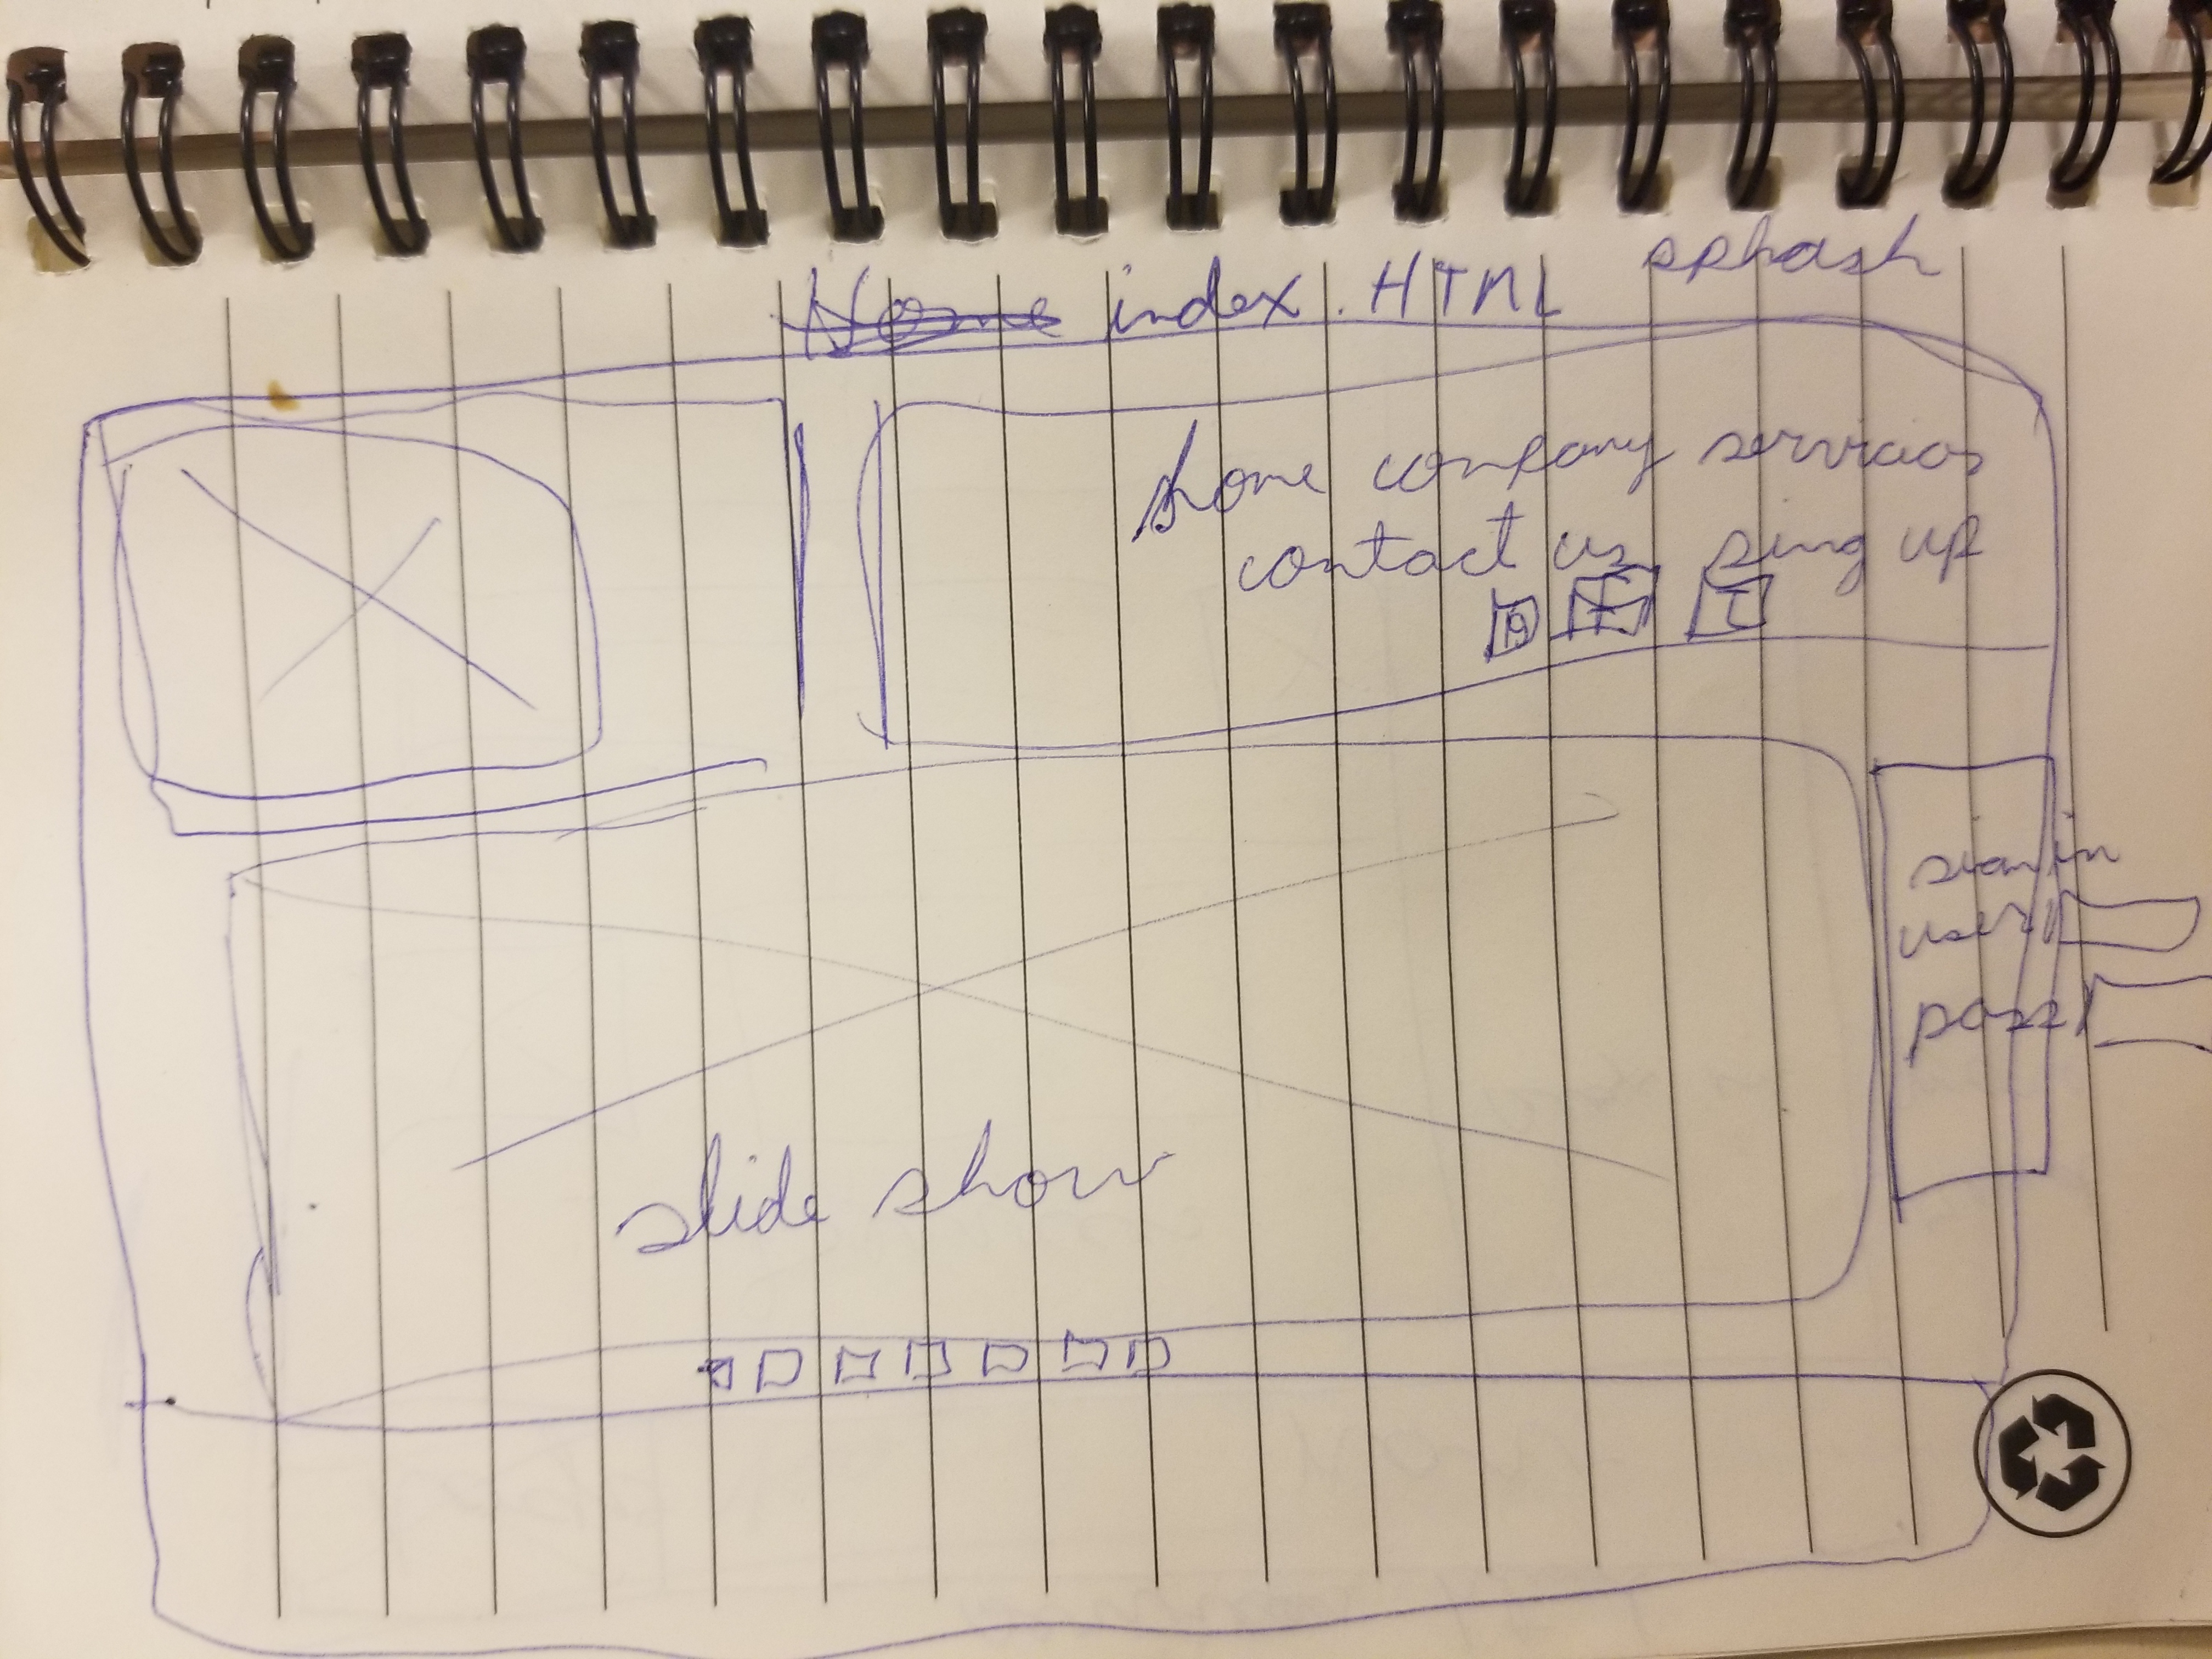 Home index.HTML splash
home company services
contact us sing up
F T
sign in
user
pass
slide show